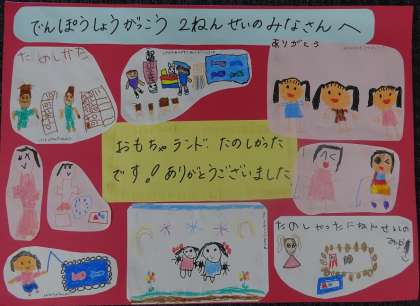 でんぽうしょうがっこう 2ねんせいのみなさんへ
ありがとう
たのしかた
おもちゃランド たのしかった
です! ありがとうございました
たのしかったにねんせいの